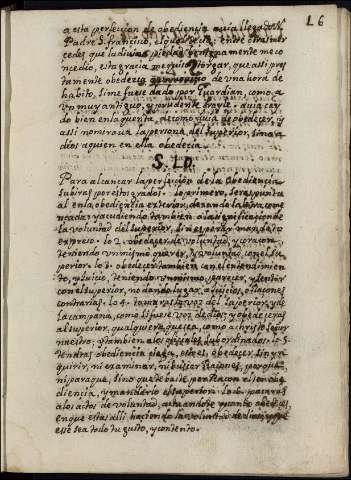 L6
a esta perfeccion de obediencia avia llegado N
Padre S. francisco, el qual dice: entre otras mer
cedes que la divina piedad benignamente me co
ncedio, esta gracia me quiso otorgar, que assi pres
tamente obedezca a un novicio de una hora de
habito, si me fuese dado por Guardian, como a
un muy antiguo, y prudente frayle. avia cay
do bien en la quenta, de como avia de obedecer, y
assi no mirava la persona del superior, sino a
dios a quien en ella obedecia.
S. 10.
Para alcançar la perfeccion de la obediencia
subiras por estos grados. lo primero, seras puntu
al en la obediencia exterior, dexando la letra come
nçada: y acudiendo tambien a la significacion de
la voluntad del superior, sin esperar mandato
expreso. lo 2. obedecer de voluntad, y coraçon,
teniendo un mismo querer, y voluntad con el su
perior. lo 3. obedecer tambien con el entendimien
to, y juicio, teniendo un mismo parecer, y sentir
con el superior, no dando lugar a juicios, o raçones
contrarias. lo 4. tomaras la voz del superior, y de
la campana, como si fuese voz de dios, y obedeceras
al superior, qualquiera que sea, como a christo señor
nuestro; y tambien a los oficiales subordinados. lo 5.
tendras obediencia ciega, esto es, obedecer sin yn
quirir, ni examinar, ni buscar raçones, porque,
ni para que, sino que te baste por raçon ser obe
diencia, y mandarlo el superior.
a los actos de voluntad, actuandote quando obedeces,
en que estas alli haciendo la voluntad de dios, y que
esse sea todo tu gusto, y contento.